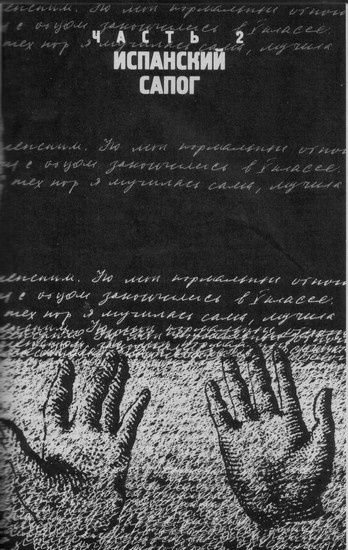 женским. Но мои нормальные отно
я с отцом закончились в V классе.
ЧАСТЬ 2
тех пор я мучилась сама, мучила
ИСПАНСКИЙ
САПОГ
женским. Но мои нормальные отно
с отцом закончились в V классе.
тех пор я мучилась сама, мучила
женским. Но мои нормальные отно
с отцом закончились в V классе.
тех пор я мучилась сама, мучила